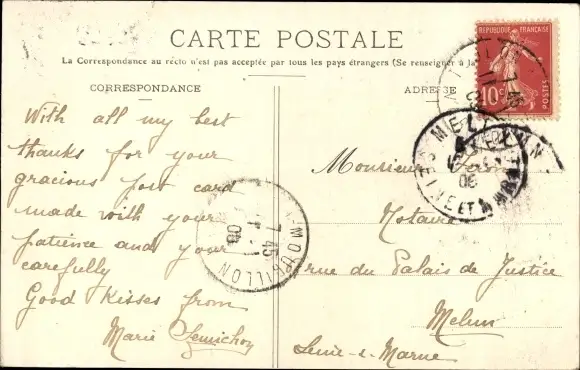 CARTE POSTALE
La Correspondance au recto n'est pas acceptée par tous les pays étrangers (Se renseigner à la
CORRESPONDANCE
ADRESSE
REPUBLIQUE FRANÇAISE
10c
POSTES
With all my best
thanks for your
gracious post card
made with your
patience and your
carefully
Good kisses from
Marie
Monsieur
Notaire
rue du Palais de Justice
Melun
Seine-s-Marne
MELUN
SEINE ET MARNE
7 45
08
MOURILLON